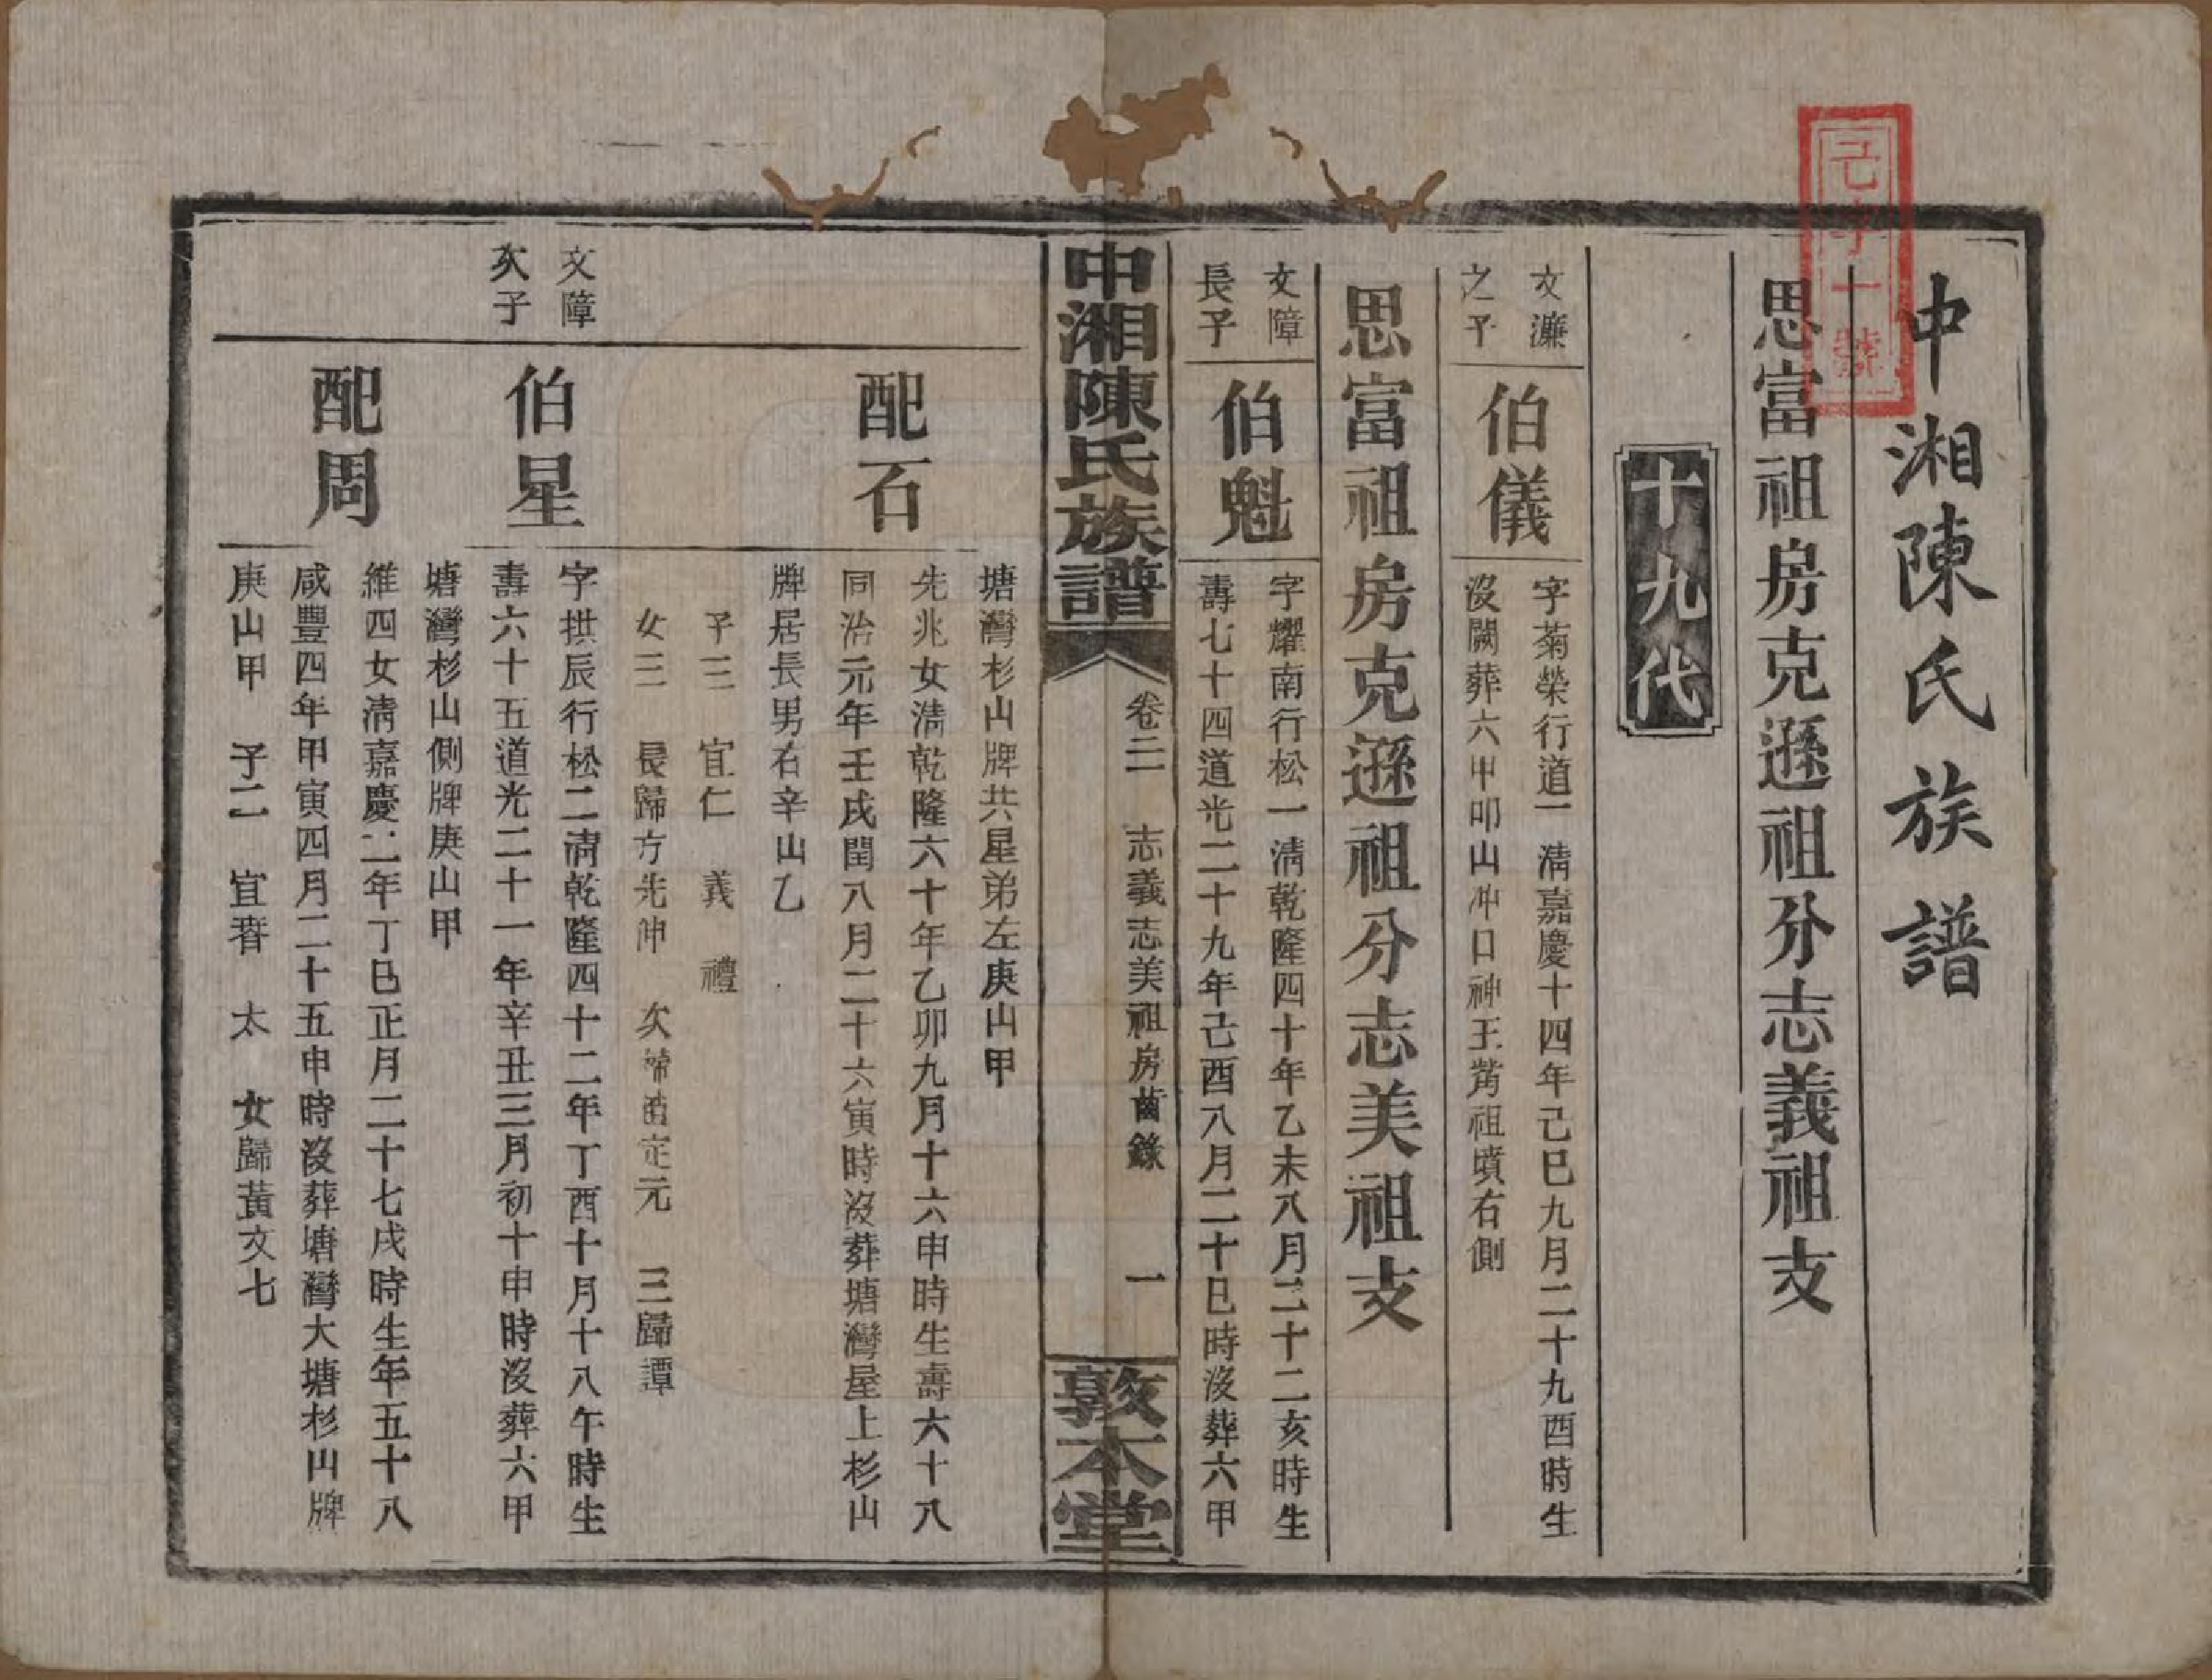 中湘陳氏族譜
思富祖房克遜祖分志義祖支
十九代
文濂
之子
伯儀
字菊榮行道一清嘉慶十四年己巳九月二十九酉時生
沒闕葬六甲叩山冲口神王嵜祖墳右側
思富祖房克遜祖分志美祖支
文障
長子
伯魁
字耀南行松一清乾隆四十年乙未八月二十二亥時生
壽七十四道光二十九年己酉八月二十巳時沒葬六甲
中湘陳氏族譜
卷三 志義志美祖房齒錄 一
敦本堂
塘灣杉山牌共星弟左庚山甲
配石
先兆女清乾隆六十年乙卯九月十六申時生壽六十八
同治元年壬戌閏八月二十六寅時沒葬塘灣屋上杉山
牌居長男右辛山乙
子三 宜仁 義 禮
女三 長歸方光 次 定元 三歸譚
文障
次子
伯星
字拱辰行松二清乾隆四十二年丁酉十月十八午時生
壽六十五道光二十一年辛丑三月初十申時沒葬六甲
塘灣杉山側牌庚山甲
配周
維四女清嘉慶二年丁巳正月二十七戌時生年五十八
咸豐四年甲寅四月二十五申時沒葬塘灣大塘杉山牌
庚山甲 子二 宜春 太 女歸黃文七
己字一號